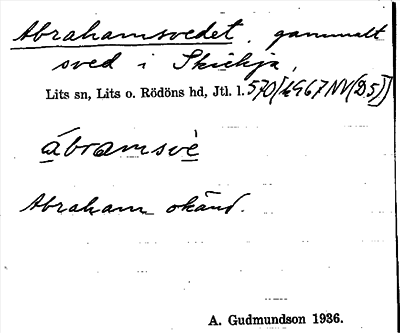 Abrahamsvedet, gammalt
sved i Skickja,
Lits sn, Lits o. Rödöns hd, Jtl. l. 570 [4967 NV (D5)]
ábramsvè
Abraham okänd.
A. Gudmundson 1936.